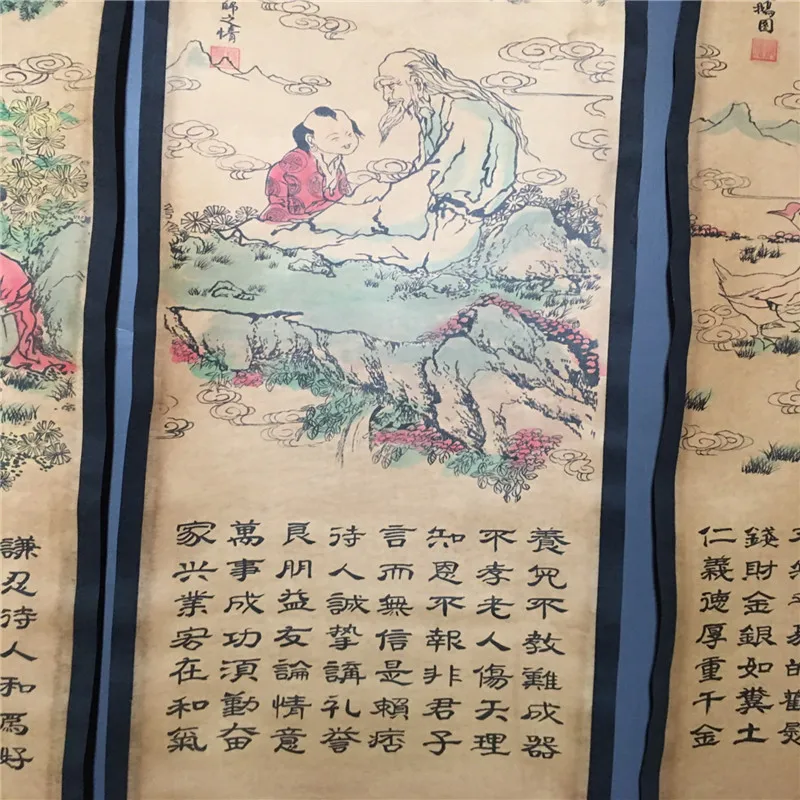 鵝図
錢財金銀如糞土
仁義德厚重千金
師之情
養児不教難成器
不孝老人傷天理
知恩不報非君子
言而無信是賴痞
待人誠摯講礼誉
良朋益友論情意
萬事成功湏勤奋
家兴業宏在和氣
謙忍待人和爲好